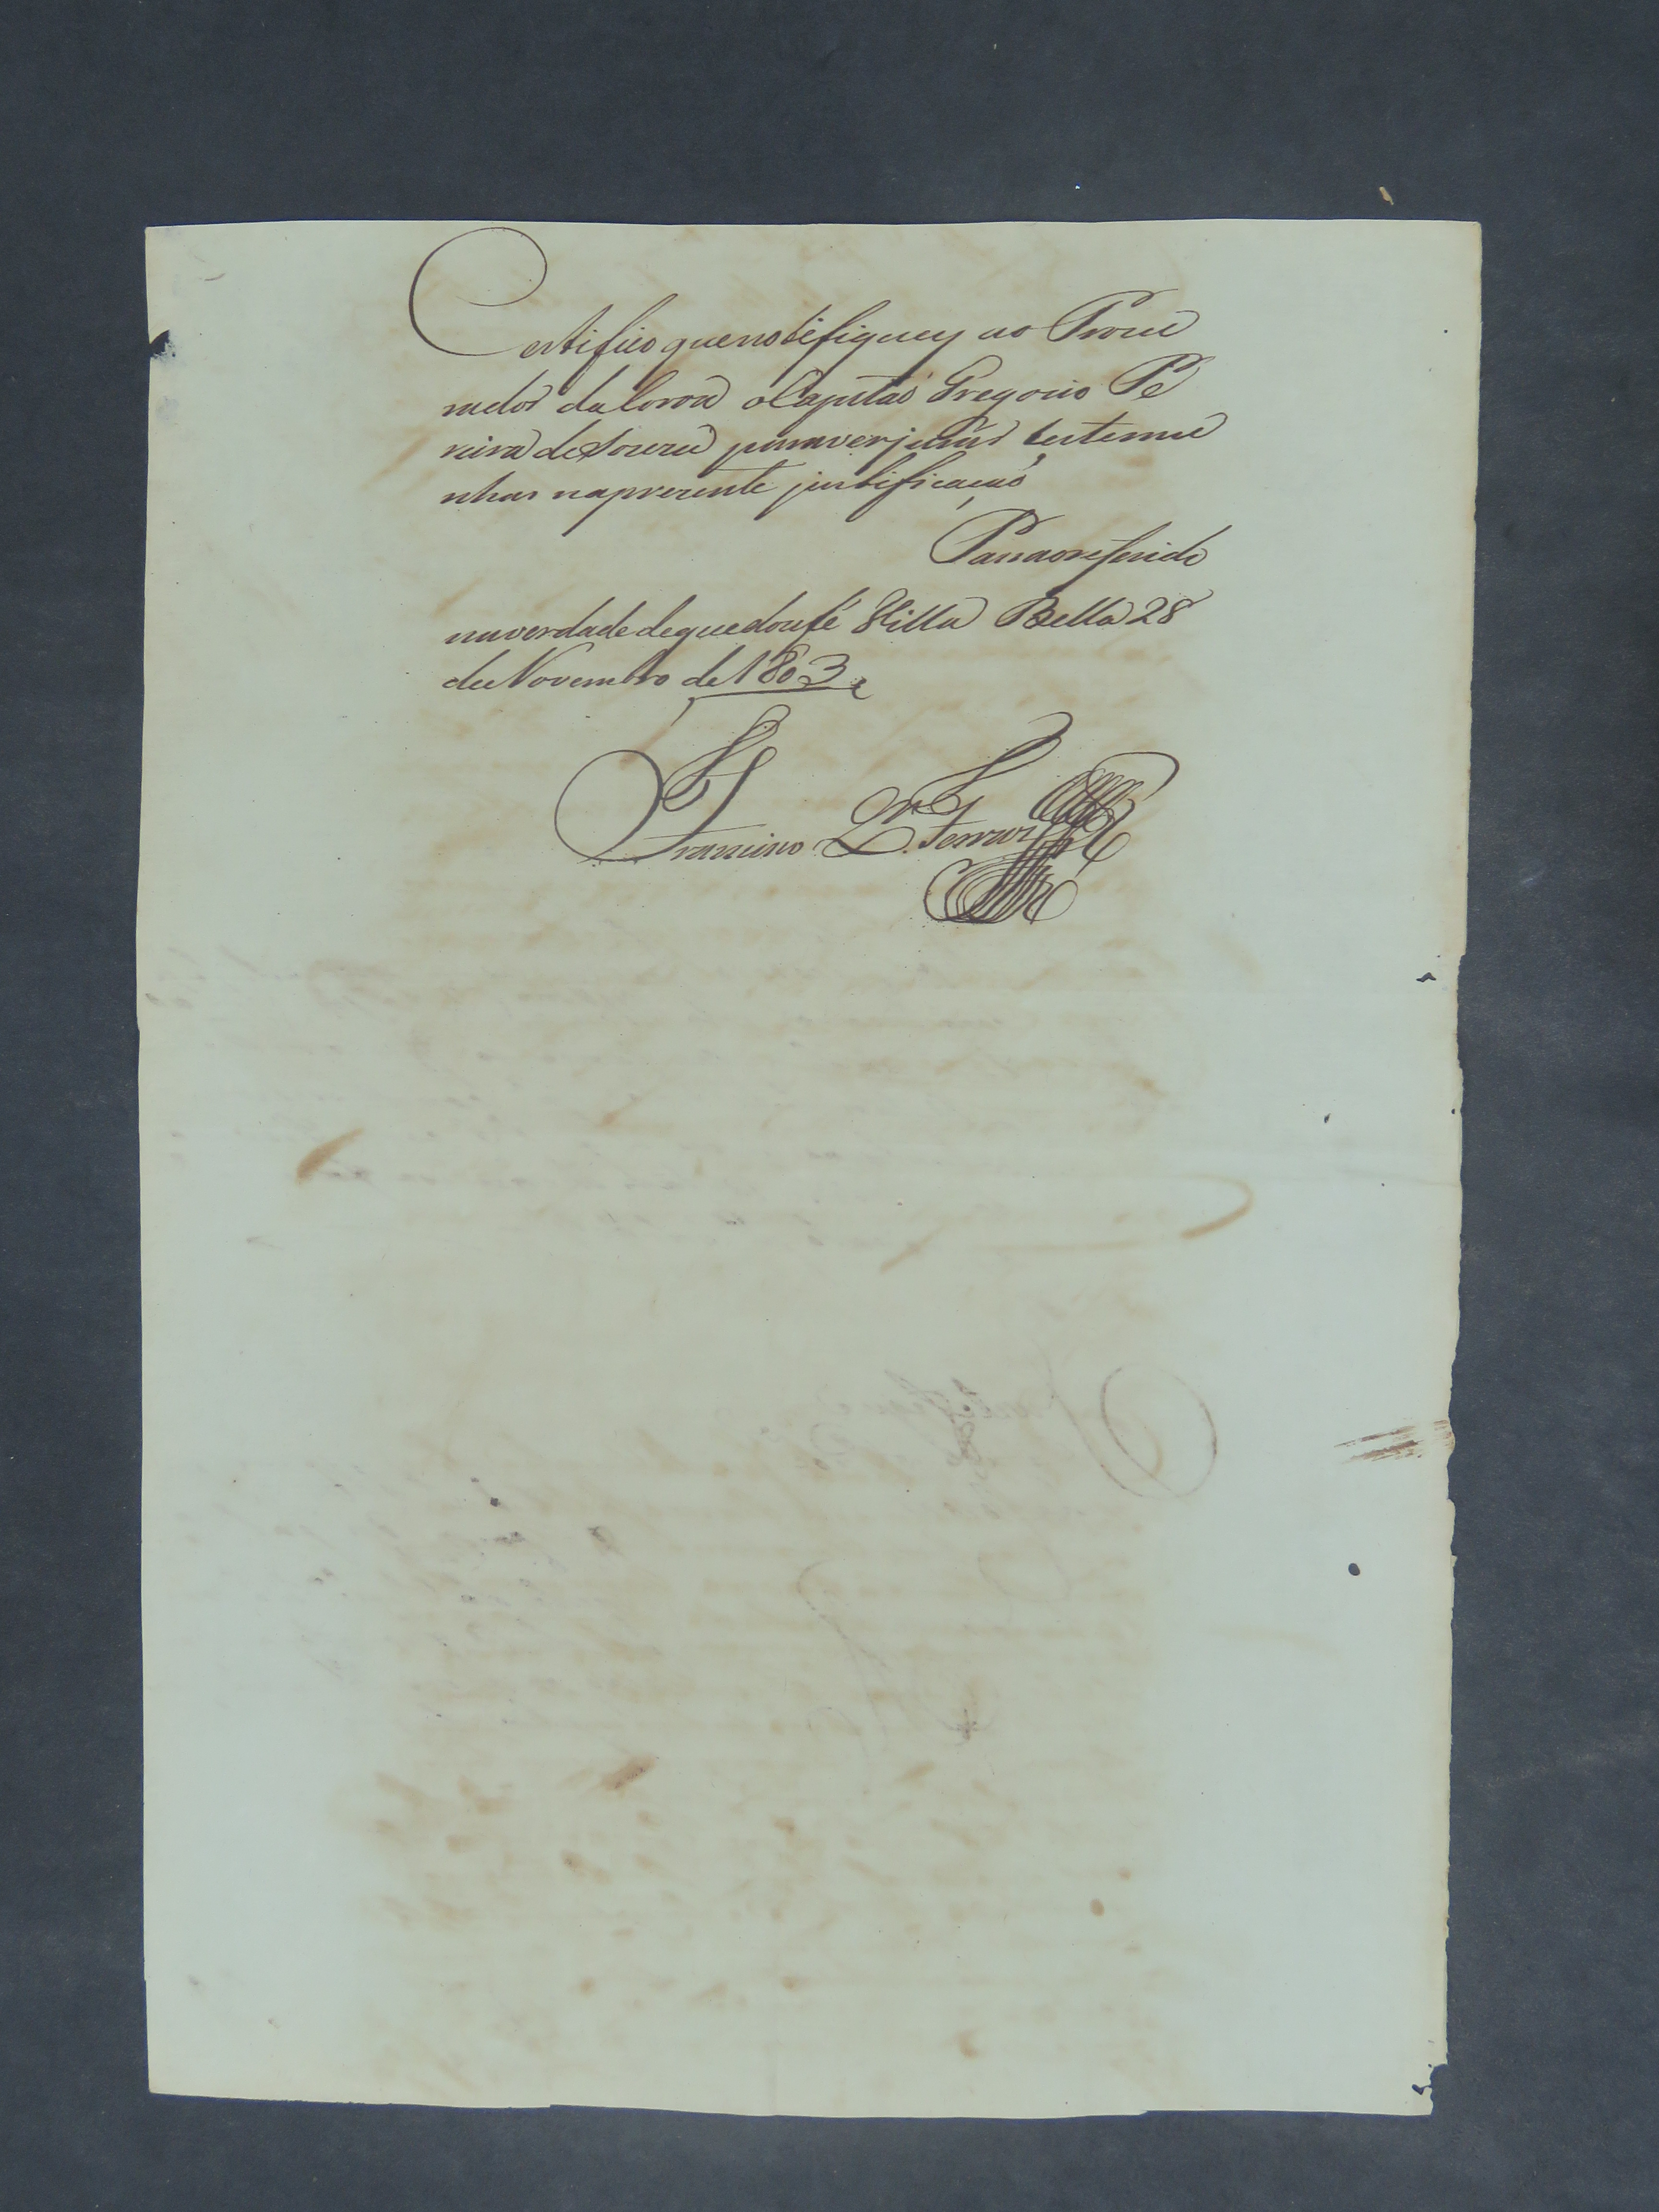 Certifico que notefiquey ao Procu
rador da Coroa o Capitaõ Gregorio Pe
reira de Souza para ver jurar testemu
nhas na prezente justificaçaõ
Passa o referido
na verdade de que dou fé Villa Bella 28
de Novembro de 1803
Francisco L. Ferraz